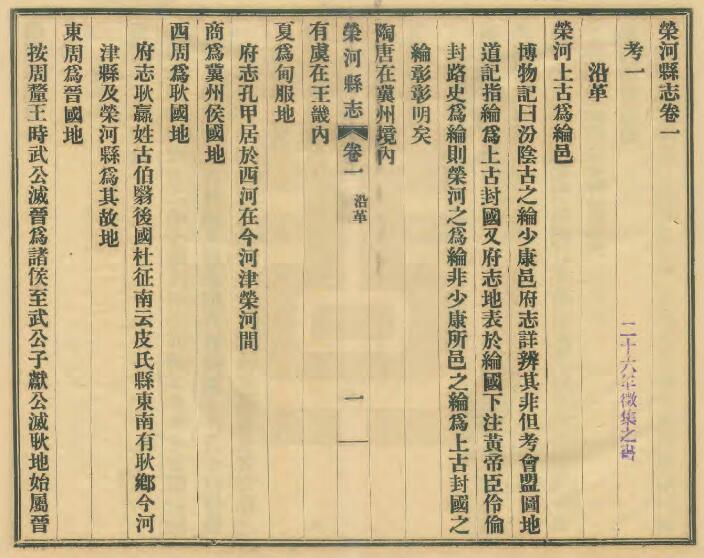 榮河縣志卷一
考一
二十六年徵集之書
沿革
榮河上古為綸邑
博物記曰汾陰古之綸少康邑府志詳辨其非但考會盟圖地
道記指綸為上古封國又府志地表於綸國下注黃帝臣伶倫
封路史為綸則榮河之為綸非少康所邑之綸為上古封國之
綸彰彰明矣
陶唐在冀州境內
榮河縣志 卷一 沿革 一
有虞在王畿內
夏為甸服地
府志孔甲居於西河在今河津榮河間
商為冀州侯國地
西周為耿國地
府志耿嬴姓古伯翳後國杜征南云皮氏縣東南有耿鄉今河
津縣及榮河縣為其故地
東周為晉國地
按周釐王時武公滅晉為諸侯至武公子獻公滅耿地始屬晉